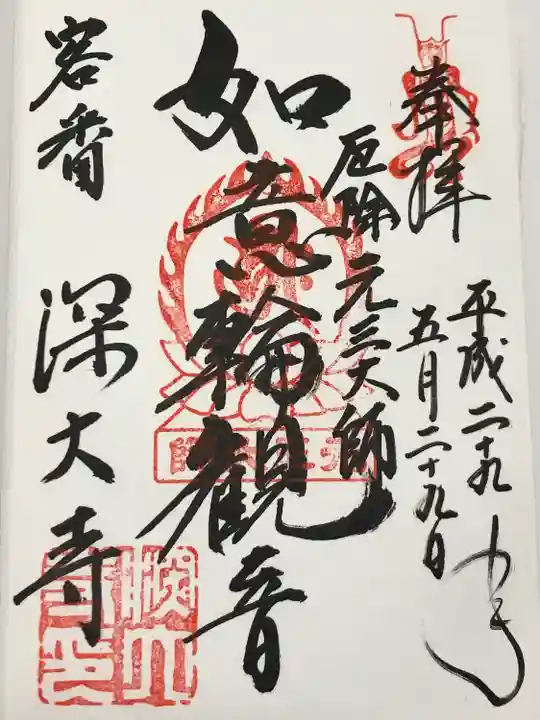 奉拝
平成二十九
五月二十九日
厄除元三大師
如意輪観音
客番
深大寺